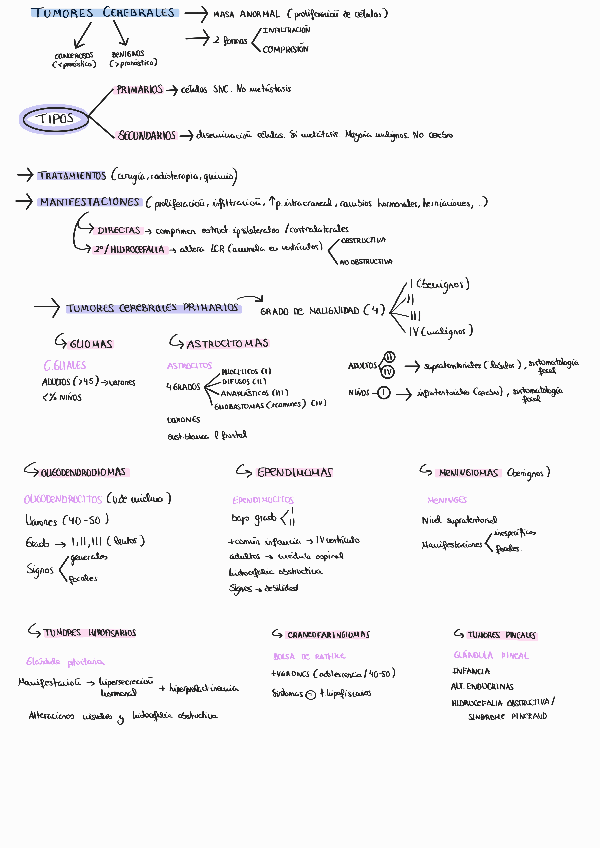 TUMORES CEREBRALES → MASA ANORMAL (proliferación de células)
→ 2 formas
INFILTRACIÓN
COMPRESIÓN
CANCEROSOS (<pronóstico)
BENIGNOS (>pronóstico)
TIPOS
PRIMARIOS → células SNC. No metástasis
SECUNDARIOS → diseminación células. Sí metástasis Mayoría malignos. No cerebro
→ TRATAMIENTOS (cirugía, radioterapia, quimio)
→ MANIFESTACIONES (proliferación, infiltración, ↑p. intracraneal, cambios hormonales, herniaciones, ..)
DIRECTAS → comprimen estruct ipsilaterales / contralaterales
2º/HIDROCEFALIA → altera LCR (acumula en ventrículos)
OBSTRUCTIVA
NO OBSTRUCTIVA
→ TUMORES CEREBRALES PRIMARIOS → GRADO DE MALIGNIDAD (4)
I (benignos)
II
III
IV (malignos)
GLIOMAS
C. GLIALES
ADULTOS (>45) → varones
<% NIÑOS
ASTROCITOMAS
ASTROCITOS
4 GRADOS
PILOCÍTICOS (I)
DIFUSOS (II)
ANAPLÁSTICOS (III)
GLIOBASTOMAS (+comunes) (IV)
VARONES
sust. blanca l frontal
ADULTOS III IV → supratentoriales (lóbulos), sintomatología focal
NIÑOS - I → infratentoriales (cerebro), sintomatología focal
OLIGODENDRODIOMAS
OLIGODENDROCITOS (v. de mielina)
Varones (40-50)
Grado → I, II, III (lentos)
Signos
generales
focales
EPENDIMOMAS
EPENDIMOCITOS
bajo grado
I
II
+común infancia → IV ventrículo
adultos → médula espinal
hidrocefalia obstructiva
Signos → debilidad
MENINGIOMAS (benignos)
MENINGES
Nivel supratentorial
Manifestaciones
inespecíficos
focales.
TUMORES HIPOFISARIOS
Glándula pituitaria
Manifestación → hipersecreción hormonal + hiperprolactinemia
Alteraciones visuales y hidrocefalia obstructiva
CRANEOFARINGIOMAS
BOLSA DE RATHKE
+VARONES (adolescencia / 40-50)
Síntomas - + hipofisarios
TUMORES PINEALES
GLÁNDULA PINEAL
INFANCIA
ALT. ENDOCRINAS
HIDROCEFALIA OBSTRUCTIVA /
SÍNDROME PINERAUD